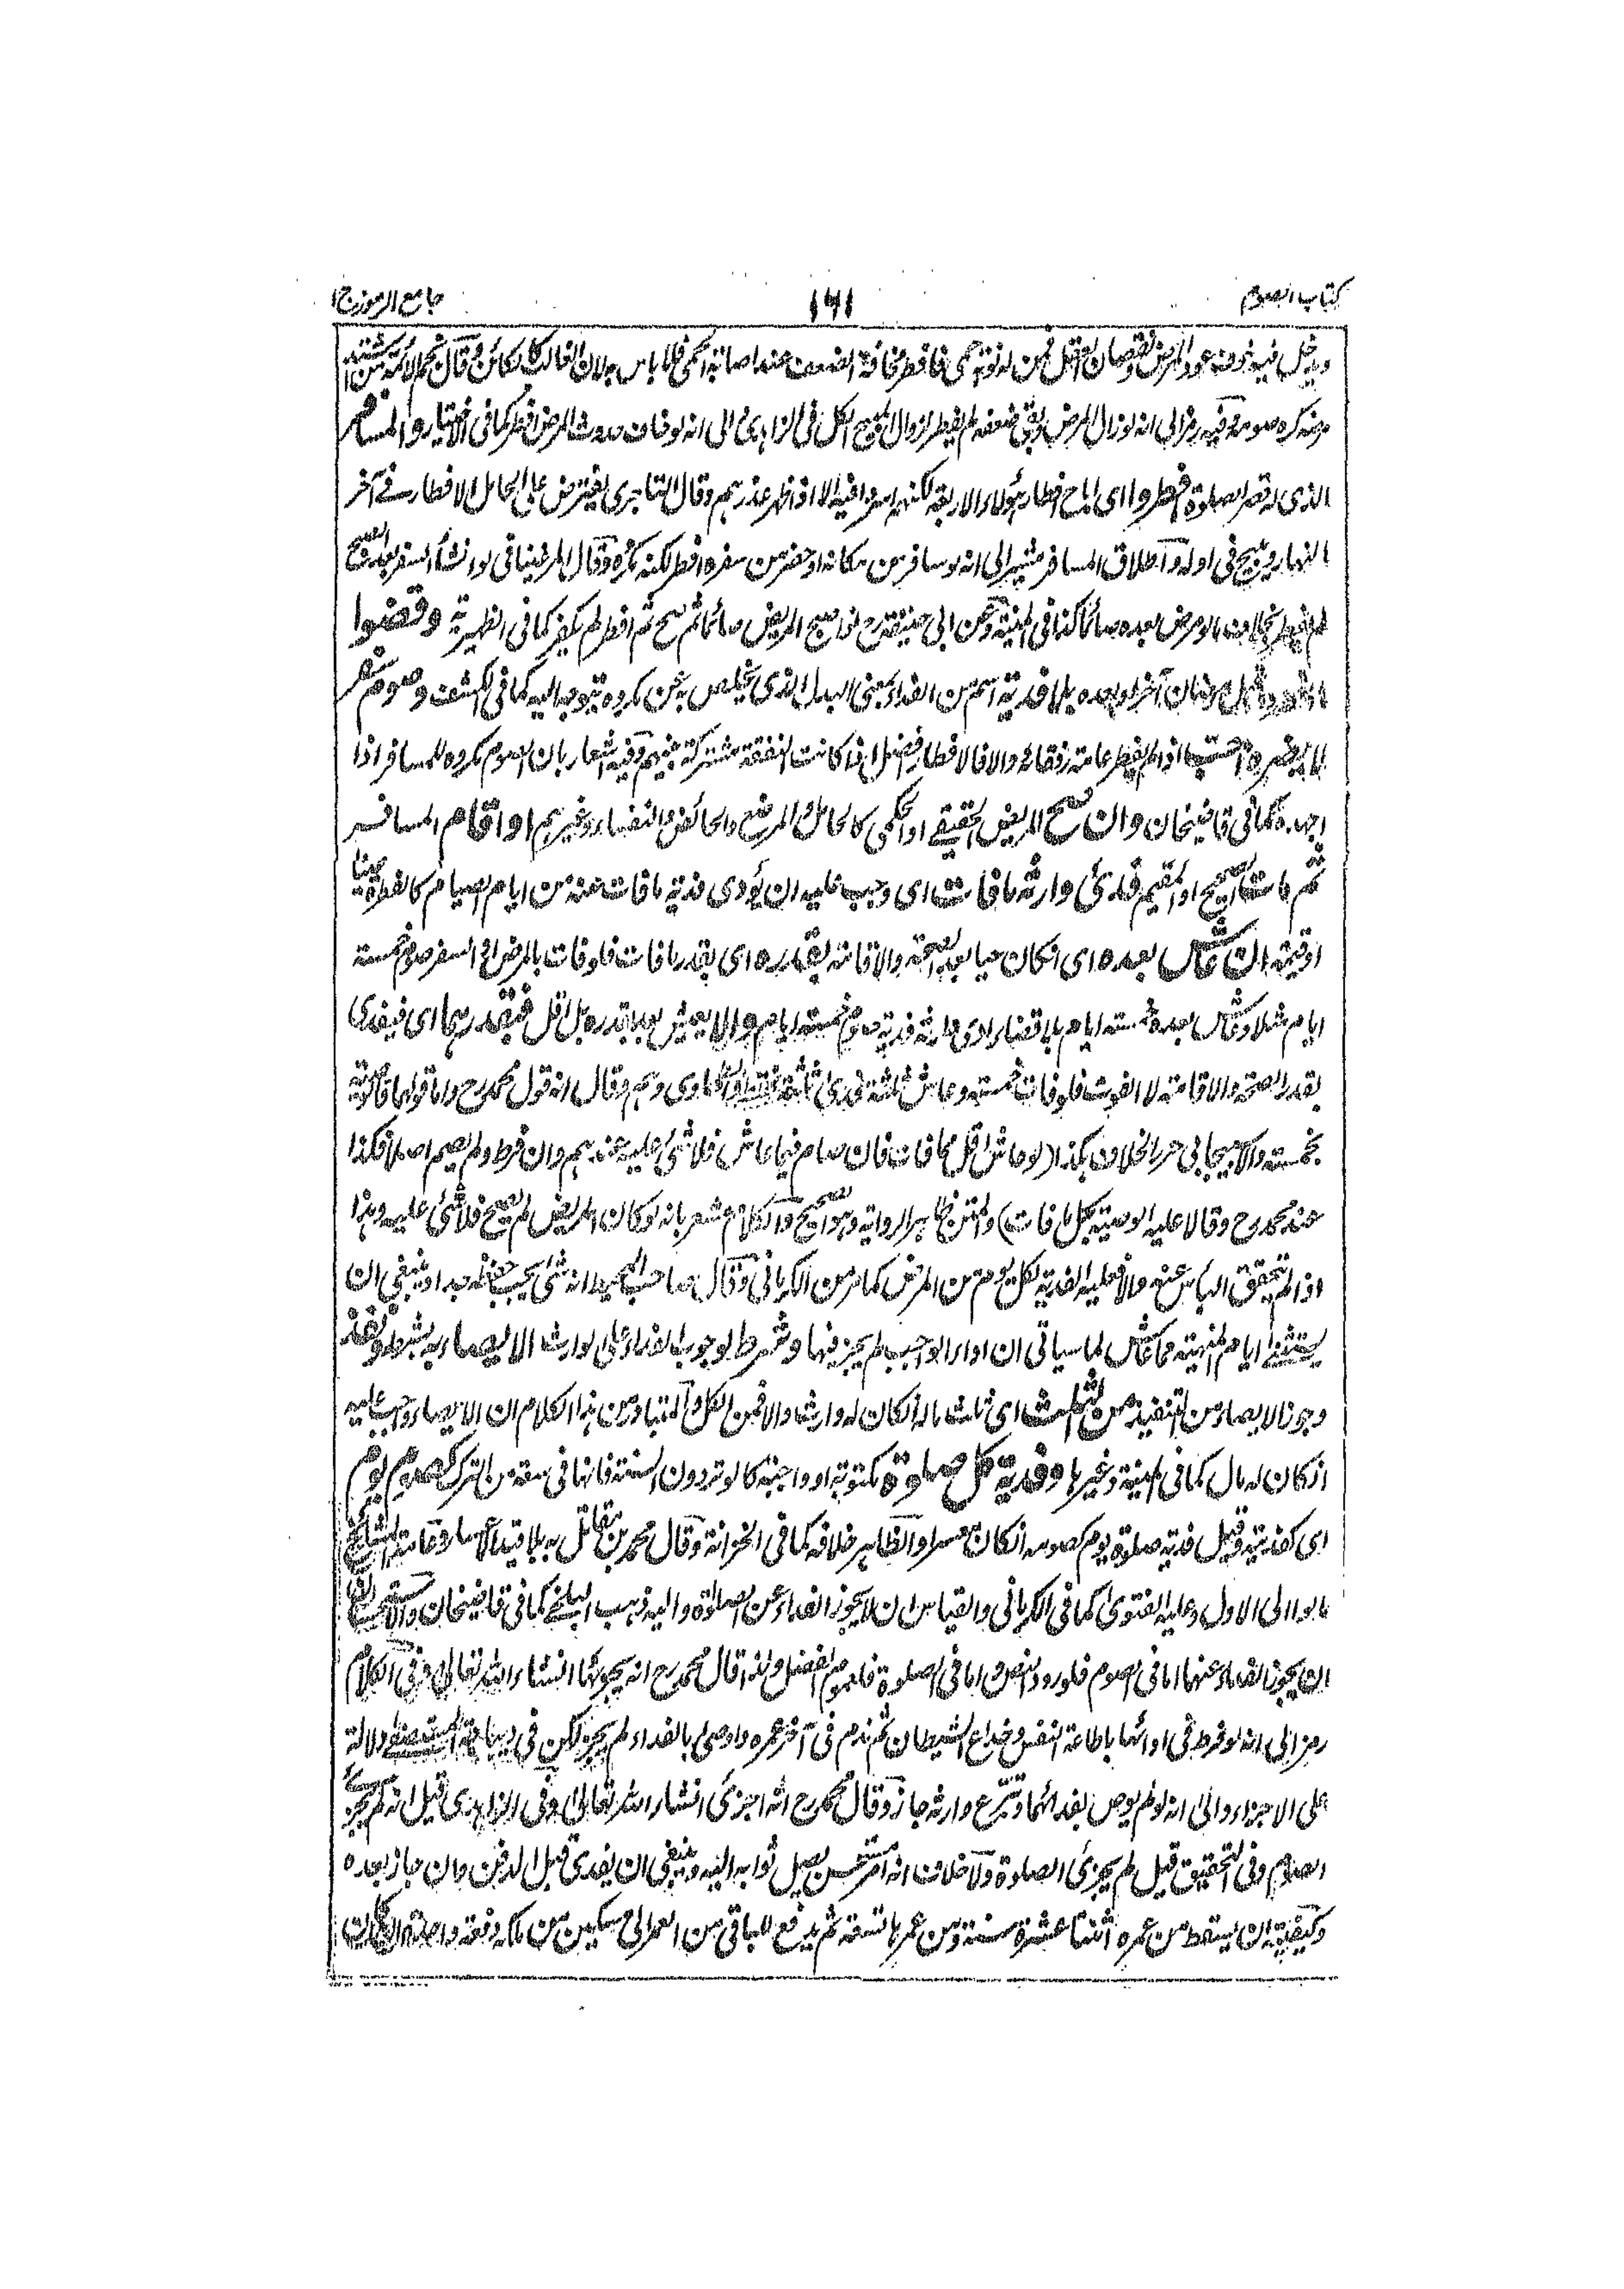 كتاب الصوم
١٦١
جامع الرموز ج ١
ويدخل فيه خوف عود المرض ونقصان العقل فمن له نوبة حمى فافطر مخافة الضعف عند اصابة الحمى فلا باس به لان الغالب كالكائن وقال نجم الائمة من اشتد
مرضه كره صومه وفيه رمز الى انه لو زال المرض وبقى ضعفه لم يفطر لزوال المبيح الكل فى الزاهدى والى انه لو خاف حدوث المرض افطر كما فى الاختيار والمسافر
الذى له قصر الصلوة افطروا اى اباح افطار هؤلاء الاربعة لكنهم اسروا فيه الا اذا ظهر عذرهم وقال التاجرى يفترض على الحامل الافطار فى آخر
النهار ويبيح فى اوله واطلاق المسافر مشير الى انه لو سافر من مكانه او حضر من سفره افطر لكنه يكره وقال المرغينانى لو انشأ السفر بعد الصبح
لم يفطر بخلاف ما لو مرض بعده صائما كذا فى المنية وعن ابى حنيفة رح لو اصبح المريض صائما ثم صح ثم افطر لم يكفر كما فى الظهيرية وقضوا
رمضان آخر او بعده بلا فدية اسم من الفداء بمعنى البدل الذى يخلص به عن مكروه يتوجه اليه كما فى الكشف وصوم سفر
لا يضره احب اذا لم يفطر عامة رفقائه والا فالافطار افضل اذا كانت النفقة مشتركة بينهم وفيه اشعار بان الصوم مكروه للمسافر اذا
اجهده كما فى قاضيخان وان صح المريض الحقيقى او الحكمى كالحامل والمرضع والحائض والنفساء وغيرهم او اقام المسافر
ثم مات الصحيح او المقيم فدى وارثه ما فات اى وجب عليه ان يؤدى فدية ما فات عنه من ايام الصيام كالفطرة عينا
او قيمة ان عاش بعده اى ان كان حيا بعد الصحة والاقامة بقدره اى بقدر ما فات فلو فات بالمرض او السفر صوم خمسة
ايام مثلا وعاش بعده خمسة ايام بلا قضاء ادى وارثه فدية صوم خمسة ايام والا يعش بعده بقدره بل اقل فبقدرهما اى فيفدى
بقدر الصحة والاقامة لا الفوت فلو فات خمسة وعاش ثلثة فدى ثلثة وقال انه قول محمد رح واما قولهما
بخمسة والاسبيجابى حرر الخلاف هكذا (لو عاش اقل مما فات فان صام فيما عاش فلا شئ عليه عندهم وان فرط ولم يصم اصلا فكذا
عند محمد رح وقالا عليه الوصية بكل ما فات) والمتن ظاهر الرواية وهو الصحيح والكلام مشعر بانه لو كان المريض لم يصح فلا شئ عليه وهذا
اذا لم يتحقق الياس عنه والا فعليه الفدية لكل يوم من المرض كما مر من الكرمانى وقال صاحب المحيط انه شئ يجب حفظه جدا وينبغى ان
يستثنى ايام المنهية مما عاش لما سياتى ان اداء الواجب لم يجز فيها وشرط لوجوب الفداء على الوارث الايصاء به بشرطه ونفذ
وجوز الايصاء من التنفيذ من الثلث اى ثلث ماله ان كان له وارث والا فمن الكل والمتبادر من هذا الكلام ان الايصاء واجب عليه
ان كان له مال كما فى المنية وغيرها وفدية كل صلوة مكتوبة او واجبة كالوتر دون السنة فانها فى سعة من الترك كصوم يوم
اى كفديته وقيل فدية صلوة يوم كصومه ان كان معسرا والظاهر خلافه كما فى الخزانة وقال محمد بن مقاتل به بلا قيد الاعسار وعامة المشايخ
مالوا الى الاول وعليه الفتوى كما فى الكرمانى والقياس ان لا يجوز الفداء عن الصلوة واليه ذهب البلخى كما فى قاضيخان والاستحسان
ان يجوز الفداء عنهما اما فى الصوم فلورود النص واما فى الصلوة فلعموم الفضل ولذا قال محمد رح انه يجزئها انشاء الله تعالى وفى الكلام
رمز الى انه لو فرط فى ادائها باطاعة النفس وخداع الشيطان ثم ندم فى آخر عمره واوصى بالفداء لم يجز لكن فى ديباجة المستصفى دلالة
على الاجزاء والى انه لو لم يوص بفدائهما وتبرع وارثه جاز وقال محمد رح انه اجزئ انشاء الله تعالى وفى الزاهدى قيل انه لم يجز
الصوم وفى التحقيق قيل لم يجزئ الصلوة ولا خلاف انه امر مستحسن يصل ثوابه اليه وينبغى ان يفدى قبل الدفن وان جاز بعده
وكيفيته ان يسقط من عمره اثنتا عشرة سنة ومن عمرها تسعة ثم يدفع للباقى من العمر الى مسكين من ماله دفعة واحدة ان كان